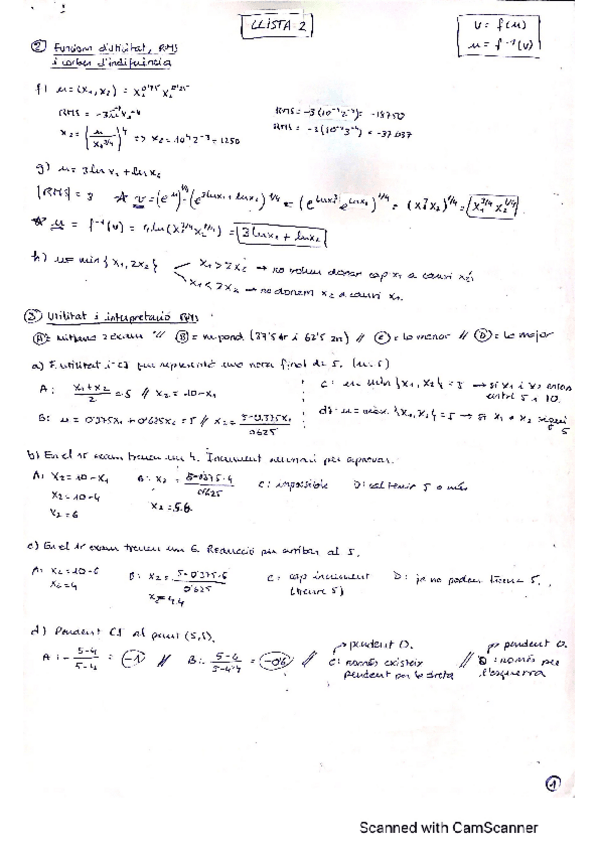 LLISTA 2
v = f(u)
u = f⁻¹(v)
② Funcions d'utilitat, RMS
i corbes d'indiferència
f) u = (x₁, x₂) = x₁^0'75 x₂^0'25
RMS = -3(10⁴2⁻³) = -18750
x₂ = (u/x₁^3/4)^4 => x₂ = 10⁴ 2⁻³ = 1250
g) u = 3 ln x₁ + ln x₂
|RMS| = 3 v = (e^u)^1/4 = (e^3lnx₁ + lnx₂)^1/4 = (e^lnx₁³ e^lnx₂)^1/4 = (x₁³x₂)^1/4 = x₁^3/4 x₂^1/4
u = f⁻¹(v) = 4 ln(x₁^3/4 x₂^1/4) = 3 lnx₁ + lnx₂
h) u = min{x₁, 2x₂}
x₁ > 2x₂ → no volem donar cap x₁ a canvi x₂
x₁ < 2x₂ → no donem x₂ a canvi x₁.
③ Utilitat i interpretació RMS
(37'5 1r i 62'5 2n) // C = la menor // D = la major
a) F. utilitat i CI que representi una nota final de 5. (u=5)
A: x₁+x₂/2 = 5 // x₂ = 10-x₁
C: u = min{x₁, x₂} = 5
entre 5 i 10.
B: u = 0'375x₁ + 0'625x₂ = 5 // x₂ = 5-0'375x₁/0'625
d: u = max{x₁, x₂} = 5 → si x₁ o x₂
5
b) En el 1r exam treuen un 4. Increment necessari per aprovar.
A: x₂ = 10-x₁
B: x₂ = 5-0'375·4/0'625
C: impossible
D: cal tenir 5 o més
x₂ = 10-4
x₂ = 5.6
x₂ = 6
c) En el 1r exam treuen un 6. Reducció per arribar al 5.
A: x₂ = 10-6
B: x₂ = 5-0'375·6/0'625
C: cap increment
(treure 5)
D: ja no poden treure 5.
x₂ = 4
x₂ = 4.4
d) Pendent CI al punt (5,5).
→ pendent 0.
→ pendent 0.
A: -5-4/5-6 = -1 //
C: només existeix
pendent per la dreta
// D: només per
l'esquerra
1
Scanned with CamScanner